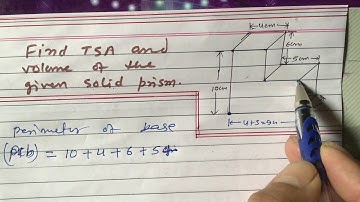 Find TSA and
volume of the
given solid prism.
4cm
6cm
5cm
10cm
Perimeter of base
(pb) = 10 + 4 + 6 + 5